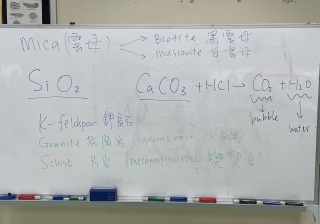 Mica (雲母) → Biotite 黑雲母
→ muscovite 白雲母
SiO2 CaCO3 + HCl → CO2 + H2O
bubble water
K-feldspar 鉀長石
Granite 花崗岩 (igneous rock
Schist 片岩 (metamorphic rock